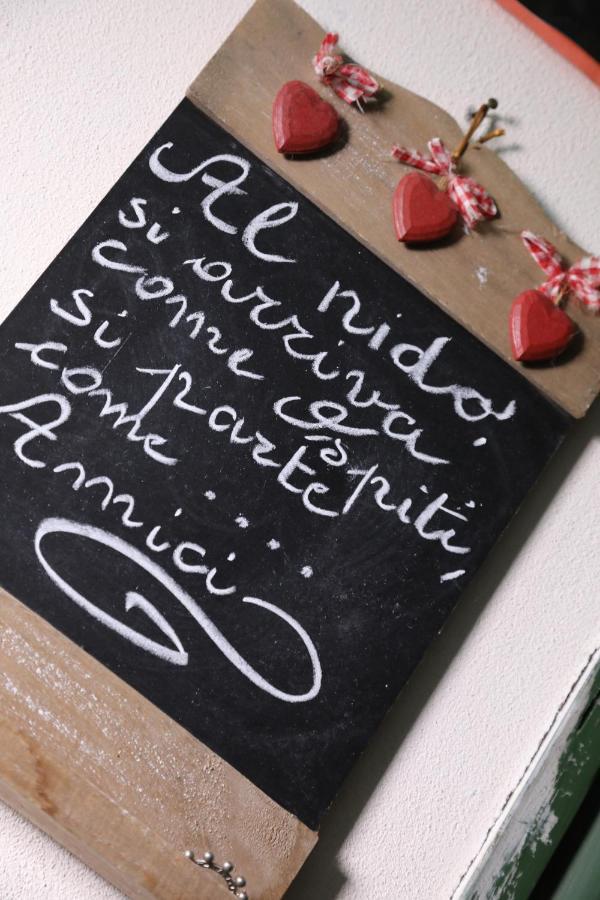 Al nido,
si arriva
come ospiti,
si parte
come....
Amici